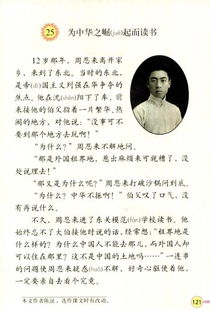 25 为中华之崛(jué)起而读书
12岁那年，周恩来离开家
乡，来到了东北。当时的东北，
是帝(dì)国主义列强在华争夺的
焦点。他在沈(shěn)阳下了车，前
来接他的伯父指着一片繁华、热
闹的地方，对他说：“没事可不
要到那个地方去玩啊！”
“为什么？”周恩来不解地问。
“那是外国租界地，惹出麻烦来可就糟了，没
处说理去！”
“那又是为什么呢？”周恩来打破沙锅问到底。
“为什么？中华不振啊！”伯父叹了口气，没
有再说什么。
不久，周恩来进了东关模范(fàn)学校读书。他
始终忘不了大伯接他时说的话，经常想：“租界地是
什么样的？为什么中国人不能去那儿，而外国人却
可以住在那里？这不是中国的土地吗……”一连串
的问题使周恩来疑惑(huò)不解，好奇心驱使着他，一
定要亲自去看个究竟。
本文作者陈汀，选作课文时有改动。
121